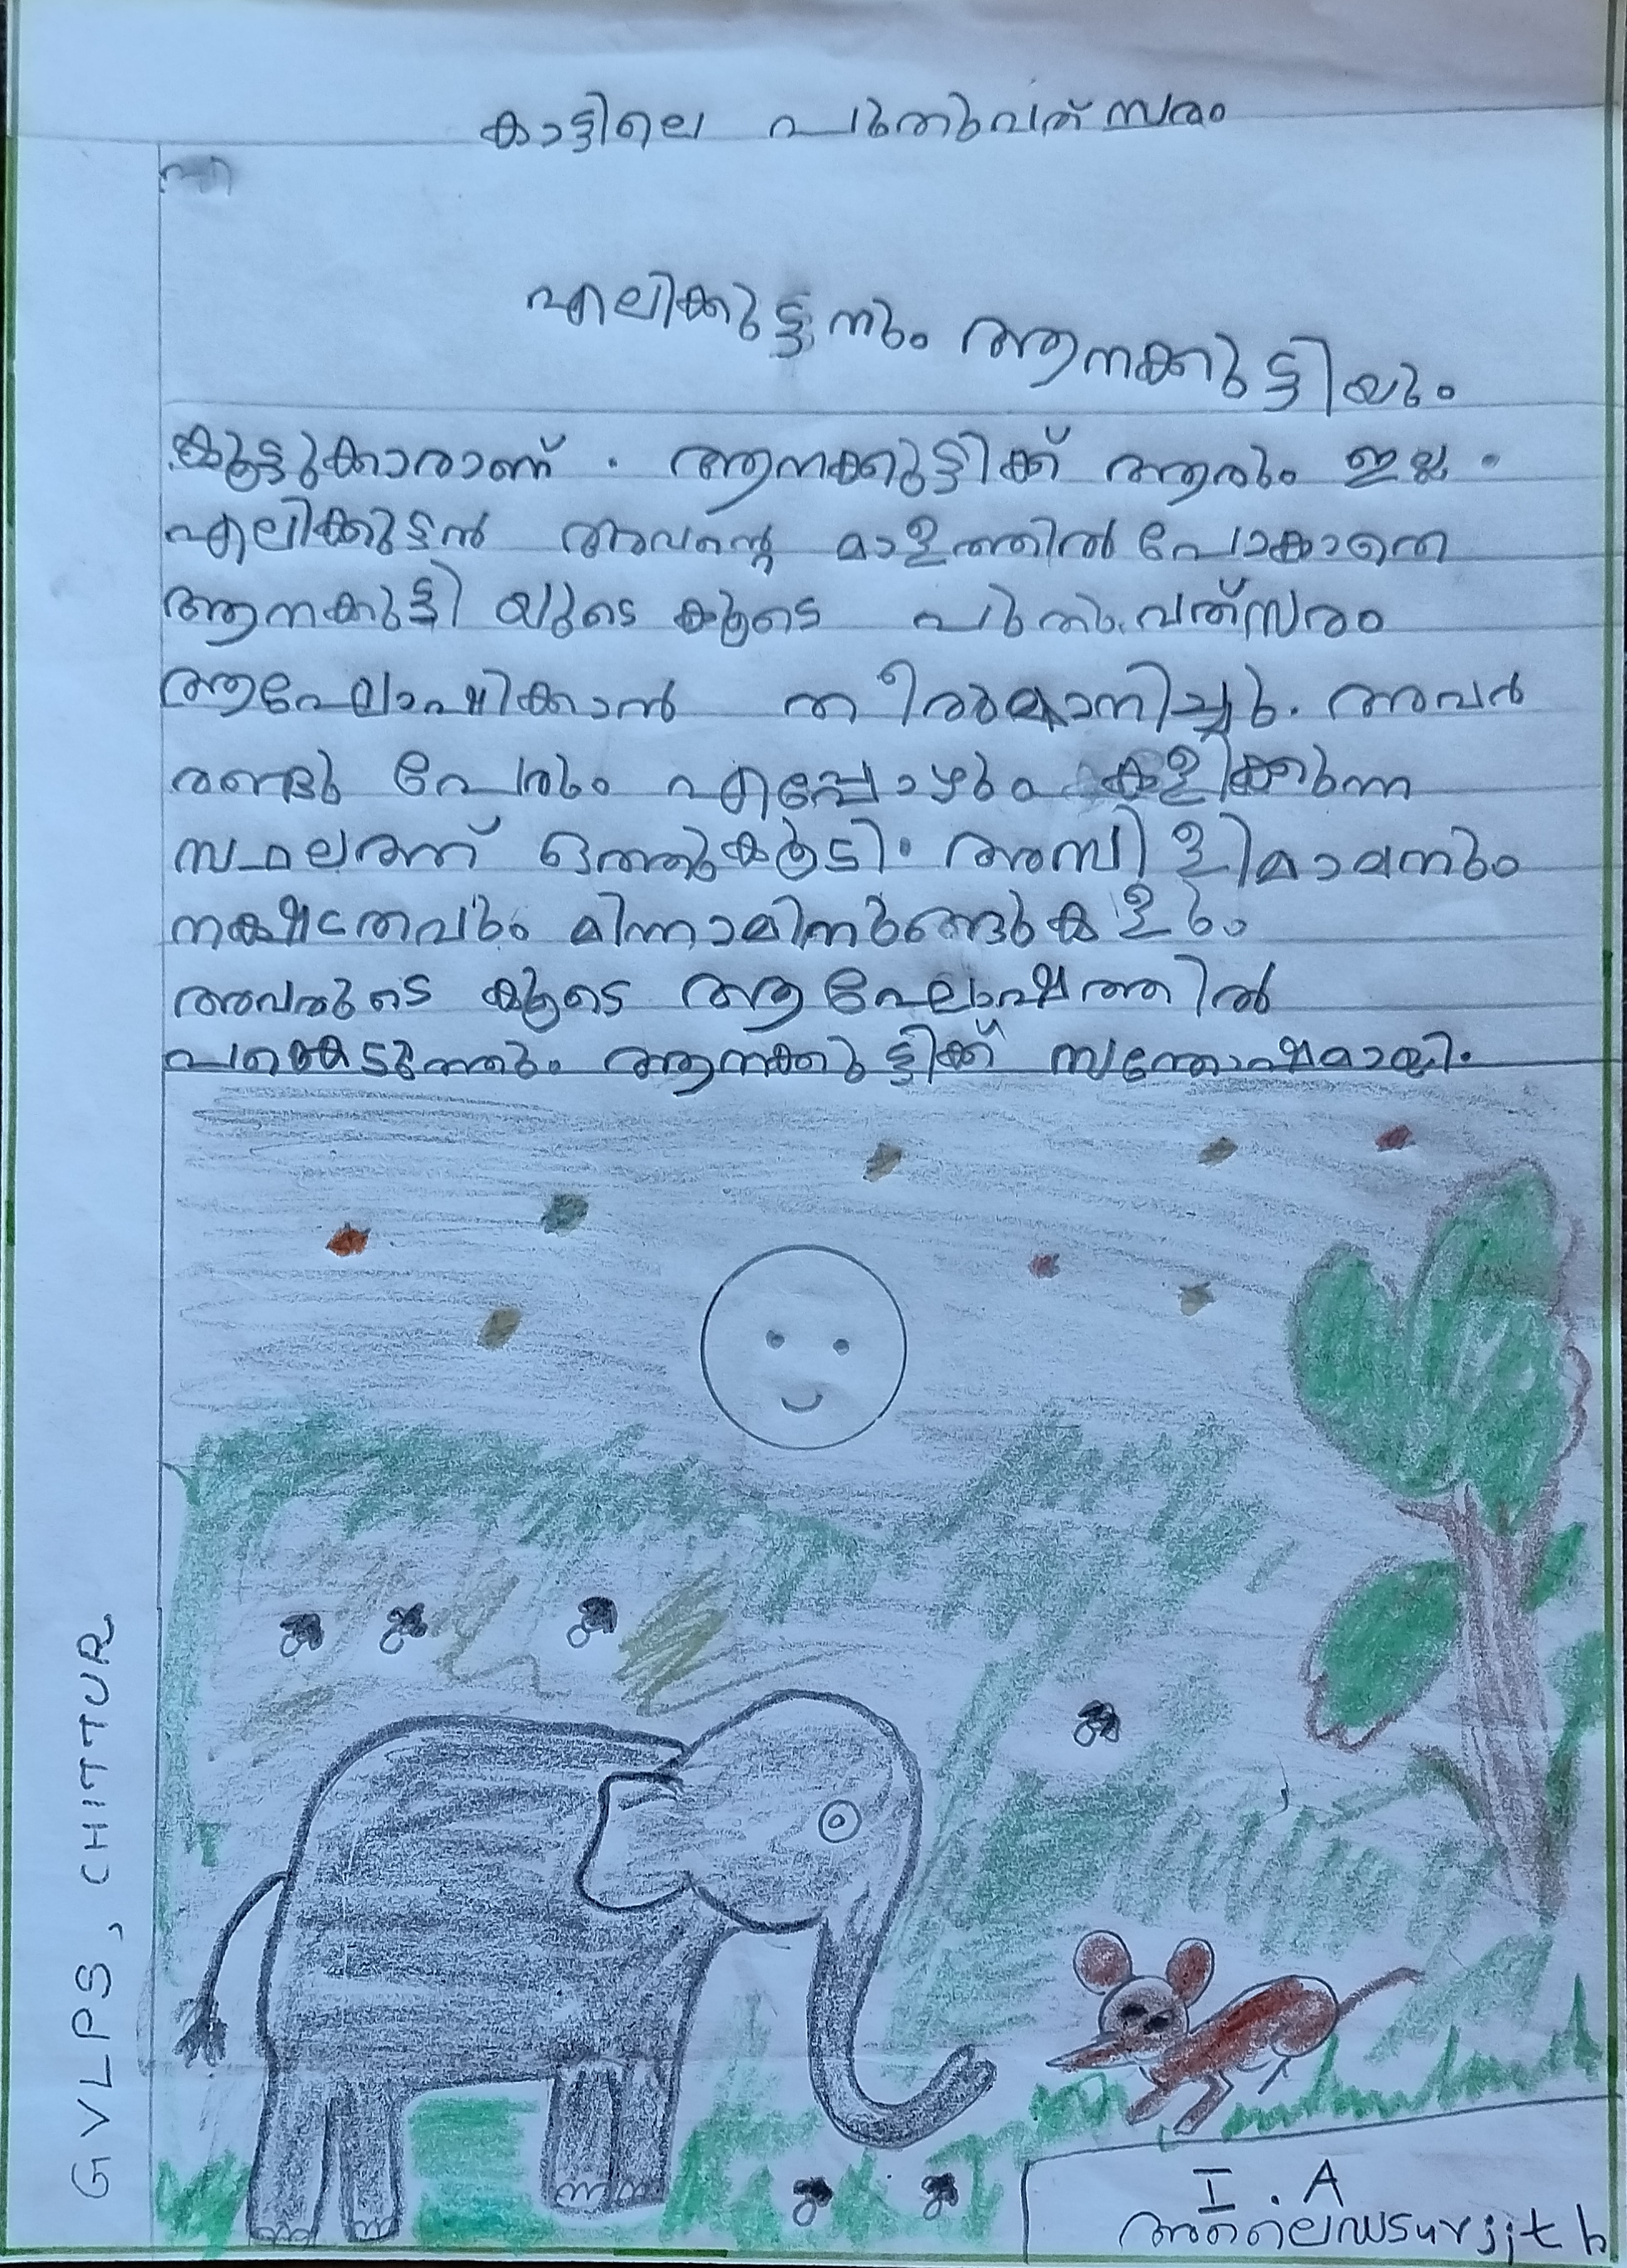 കാട്ടിലെ പുതുവത്സരം
എലിക്കുട്ടനും ആനക്കുട്ടിയും
കൂട്ടുകാരാണ്. ആനക്കുട്ടിക്ക് ആരും ഇല്ല.
എലിക്കുട്ടൻ അവന്റെ മാളത്തിൽ പോകാതെ
ആനകുട്ടിയുടെ കൂടെ പുതുവത്സരം
ആഘോഷിക്കാൻ തീരുമാനിച്ചു. അവർ
രണ്ടു പേരും എപ്പോഴും കളിക്കുന്ന
സ്ഥലത്ത് ഒത്തുകൂടി. അമ്പിളിമാമനും
നക്ഷത്രവും മിന്നാമിനുങ്ങുകളും
അവരുടെ കൂടെ ആഘോഷത്തിൽ
പങ്കെടുത്തും ആനക്കുട്ടിക്ക് സന്തോഷമായി.
GVLPS, CHITTUR
I. A
surjith